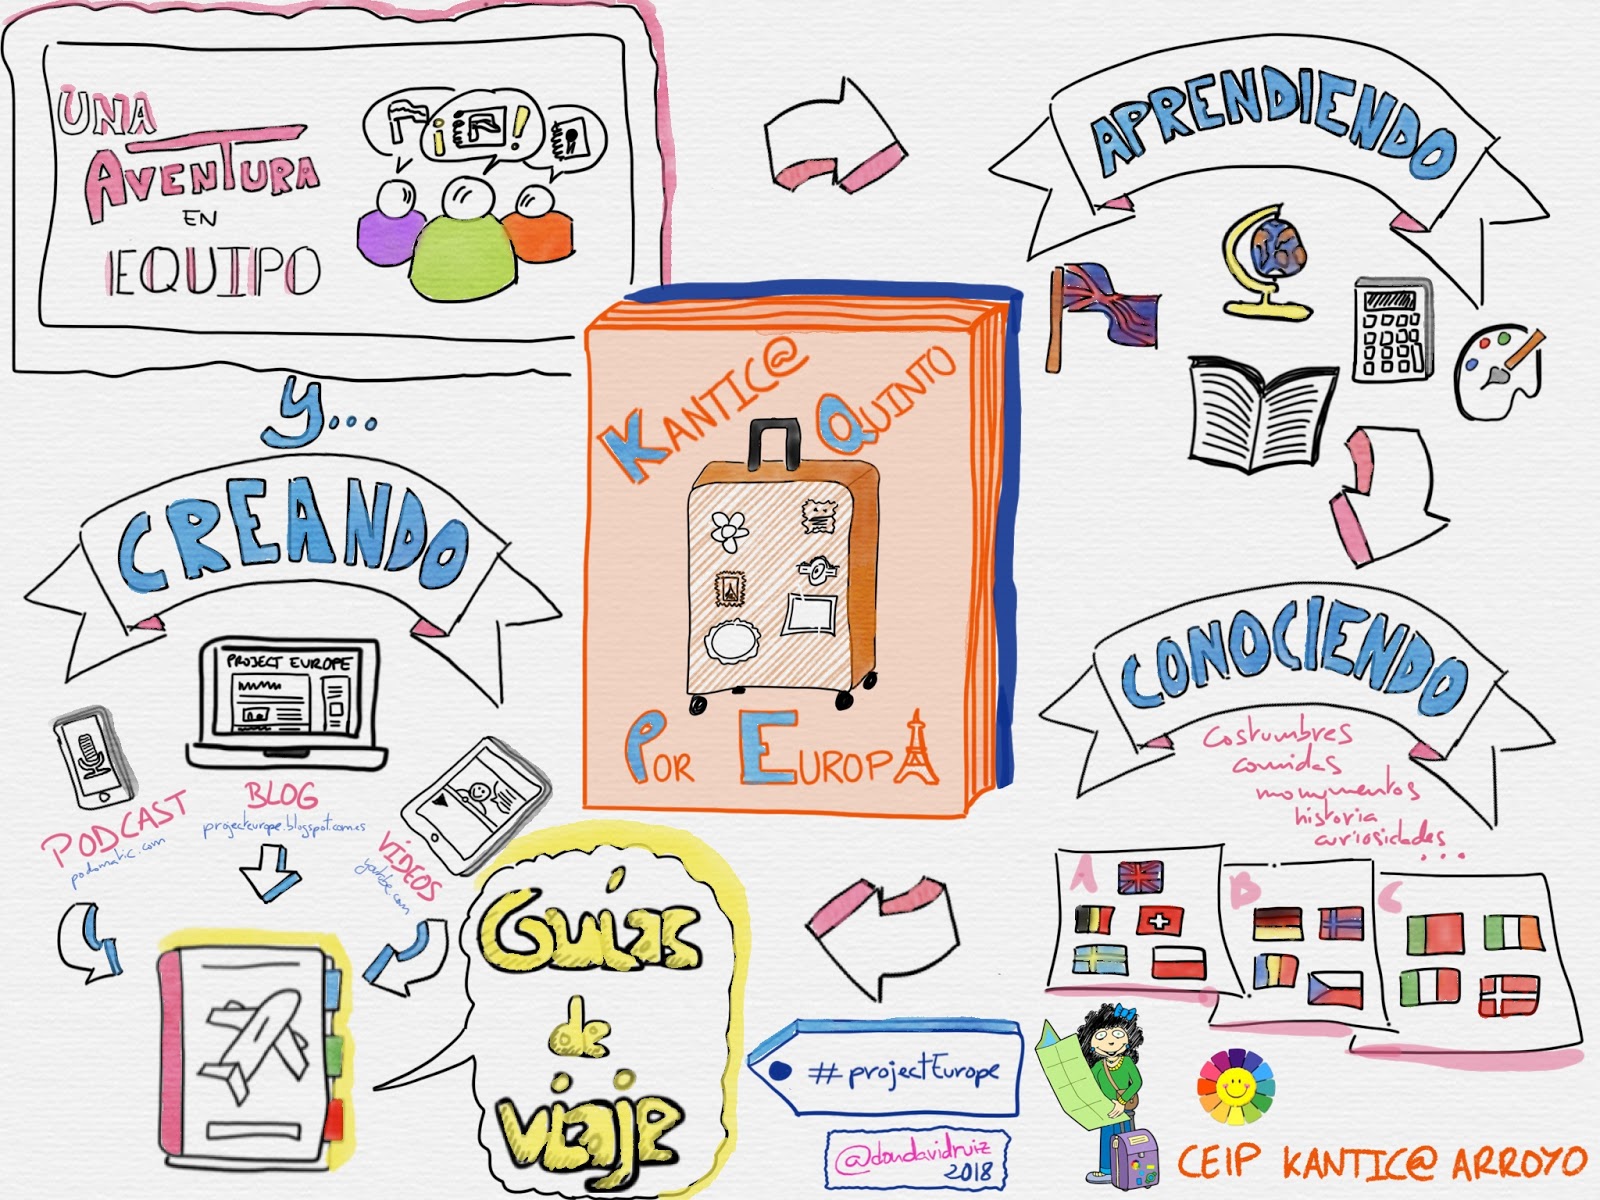 UNA
AVENTURA
EN
EQUIPO
¡ !
APRENDIENDO
KANTIC@
QUINTO
POR EUROPA
Y...
CREANDO
PROJECT EUROPE
PODCAST
podomatic.com
BLOG
projecteurope.blogspot.com.es
VÍDEOS
youtube.com
CONOCIENDO
Costumbres
comidas
monumentos
historia
curiosidades
...
A
B
C
Guías
de
viaje
#projectEurope
@dondavidruiz
2018
CEIP KANTIC@ ARROYO